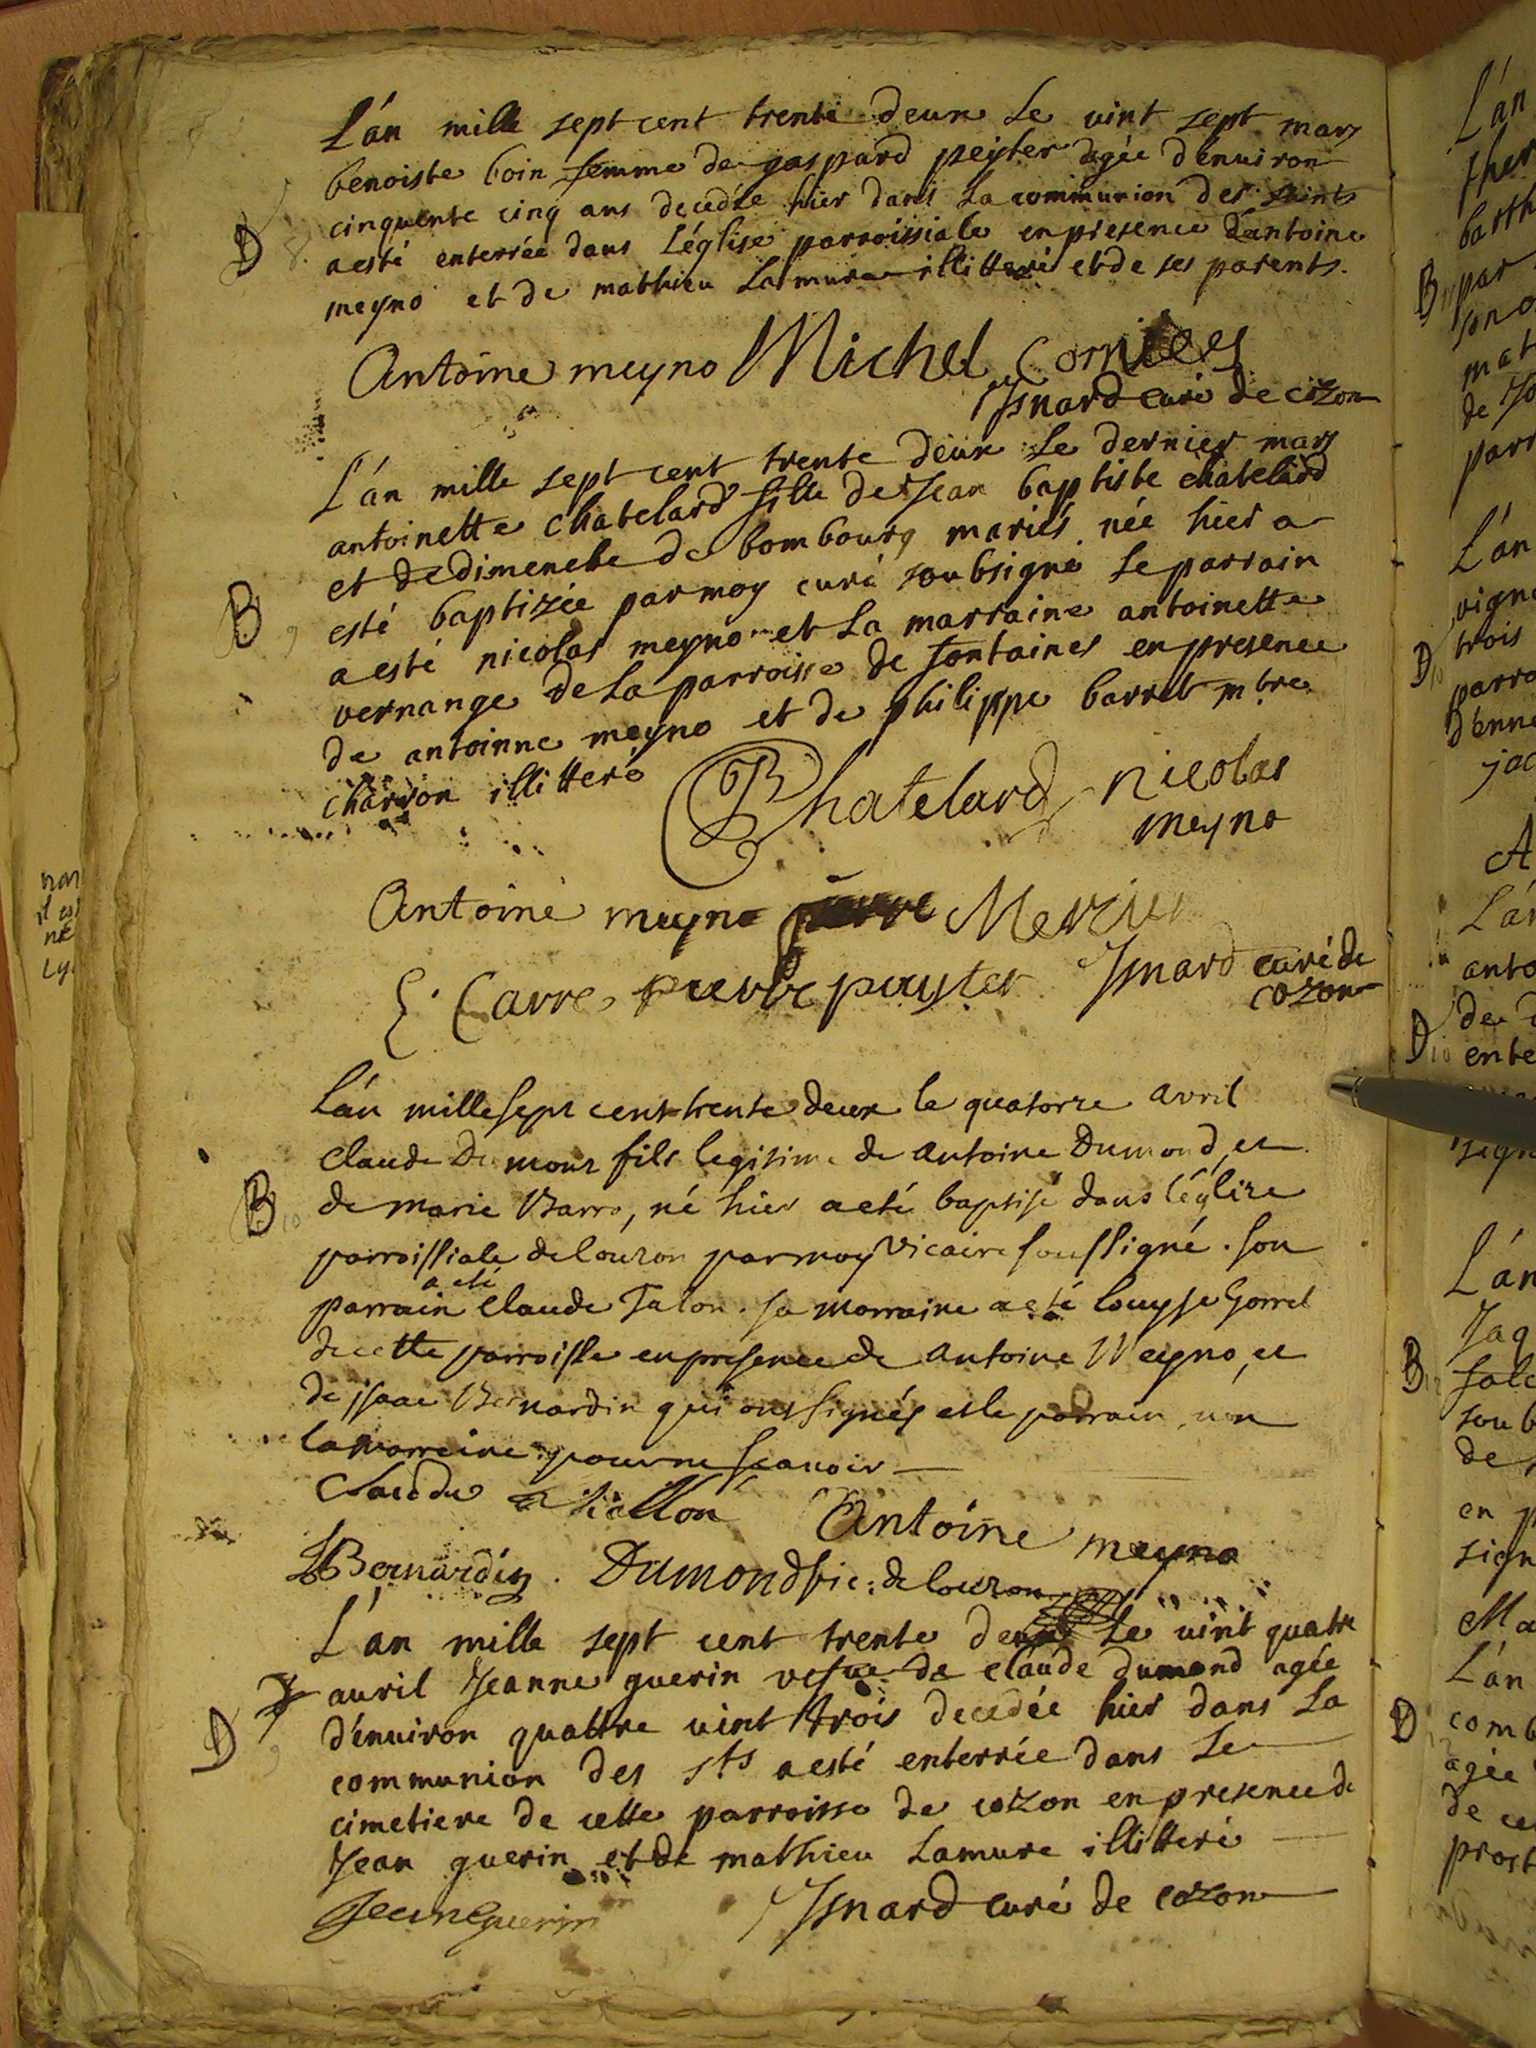 L'an mille sept cent trente deux le vint sept mars
benoiste boin femme de gaspard peyter agée d'enuiron
cinquente cinq ans decedée hier dans la communion des saints
D 8. a esté enterrée dans l'église parroissiale en presence d'antoine
meyno et de mathieu Lamure illitteré et de ses parents.
Antoine meyno Michel
Isnard curé de cozon
L'an mille sept cent trente deux le dernier mars
antoinette chatelard fille de Jean baptiste chatelard
et de dimenche de bombourg mariés née hier a
B 9 esté baptizée par moy curé soubsigné le parrain
a esté nicolas meyno et la marraine antoinette
vernange de la parroisse de fontaines en presence
de antoinne meyno et de philippe barret mtre
charron illitteré
Chatelard nicolas
meyno
Antoine meyno pierre Mercier
Carre pierre peyter Isnard curé de
cozon
L'an mille sept cent trente deux le quatorze avril
claude Dumont fils legitime de antoine Dumond, et
B 10 de marie Barro, né hier a eté baptisé dans l'églize
parroissiale de Couzon par moy Vicaire soussigné. son
a eté
parrain claude Talon. sa marraine a eté louyse Gorrel
de cette parroisse en presence de antoine Meyno, et
de isaac Bernardin qui ont signés et le parrain, non
la marreine pour ne scavoir
Antoine meyno
Bernardin. Dumond vic: de Couzon
L'an mille sept cent trente deux le vint quatre
auril Jeanne guerin vefue de claude dumond agée
D 9 d'enuiron quattre vint trois decedée hier dans la
communion des sts a esté enterrée dans le
cimetiere de cette parroisse de cozon en presence de
Jean guerin et de mathieu Lamure illitteré
Jean guerin Isnard curé de cozon